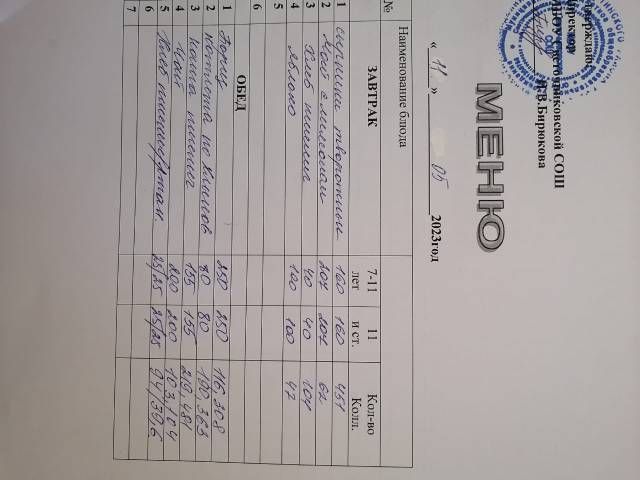 Утверждаю
Директор
МБОУ Светочниковской СОШ
Н.В.Бирюкова
МЕНЮ
« 11 » 05 2023год
№ Наименование блюда 7-11 лет 11 и ст. Кол-во Колл.
ЗАВТРАК
1 сырники творожные 160 160 451
2 Чай с лимоном 207 207 62
3 Хлеб пшенич 40 40 104
4 яблоко 100 100 47
5
6
ОБЕД
1 Борщ 250 250 116.308
2 Котлета по 80 80 190,363
3 Каша 155 155 219,481
4 Чай 200 200 103,104
5 Хлеб 25/25 25/25 94/39,6
6
7